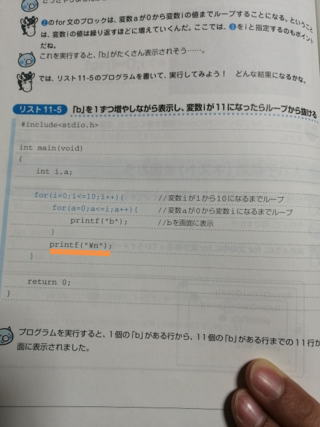 ❷のfor文のブロックは、変数aが0から変数iの値までループすることになる。ということ
は、変数iの値は繰り返すほどに増えていくんだ。ここでは、❸をiと指定するのもポイント
だね。
これを実行すると、「b」がたくさん表示されそう……。
では、リスト11-5のプログラムを書いて、実行してみよう! どんな結果になるかな。
リスト11-5 「b」を1ずつ増やしながら表示し、変数iが11になったらループから抜ける
#include<stdio.h>
int main(void)
{
int i,a;
for(i=0;i<=10;i++){ //変数iが1から10になるまでループ
for(a=0;a<=i;a++){ //変数aが0から変数iになるまでループ
printf("b"); //bを画面に表示
}
printf("¥n");
}
return 0;
}
プログラムを実行すると、1個の「b」がある行から、11個の「b」がある行までの11行が
面に表示されました。